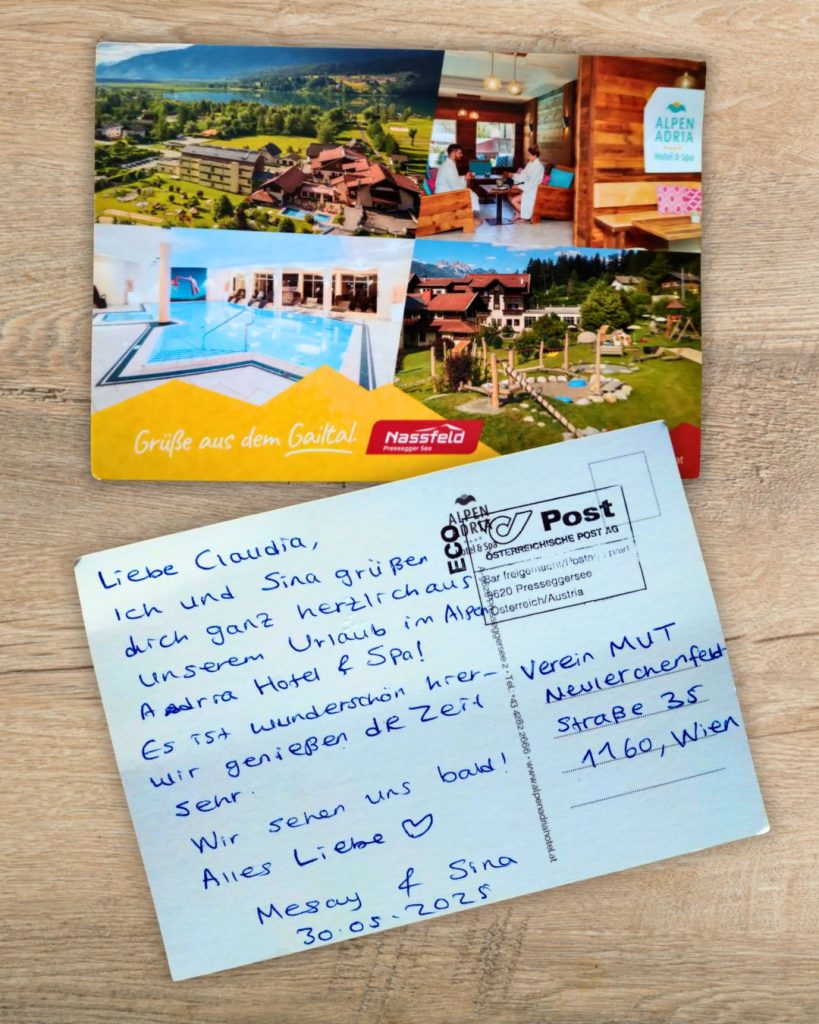 ALPEN
ADRIA
Hotel & Spa
Grüße aus dem Gailtal.
Nassfeld
Pressegger See
Liebe Claudia,
Ich und Sina grüßen
dich ganz herzlich aus
unserem Urlaub im Alpen
Adria Hotel & Spa!
Es ist wunderschön hier-
wir genießen die Zeit
sehr.
Wir sehen uns bald!
Alles Liebe ♡
Mesay & Sina
30.05.2025
ALPEN
ADRIA
Hotel & Spa
ECO
Post
ÖSTERREICHISCHE POST AG
Bar freigemacht/Postage paid
9620 Presseggersee
Österreich/Austria
Presseggersee 2 · Tel. +43 4282 2666 · www.alpenadriahotel.at
Verein MUT
Neulerchenfeld-
straße 35
1160, Wien